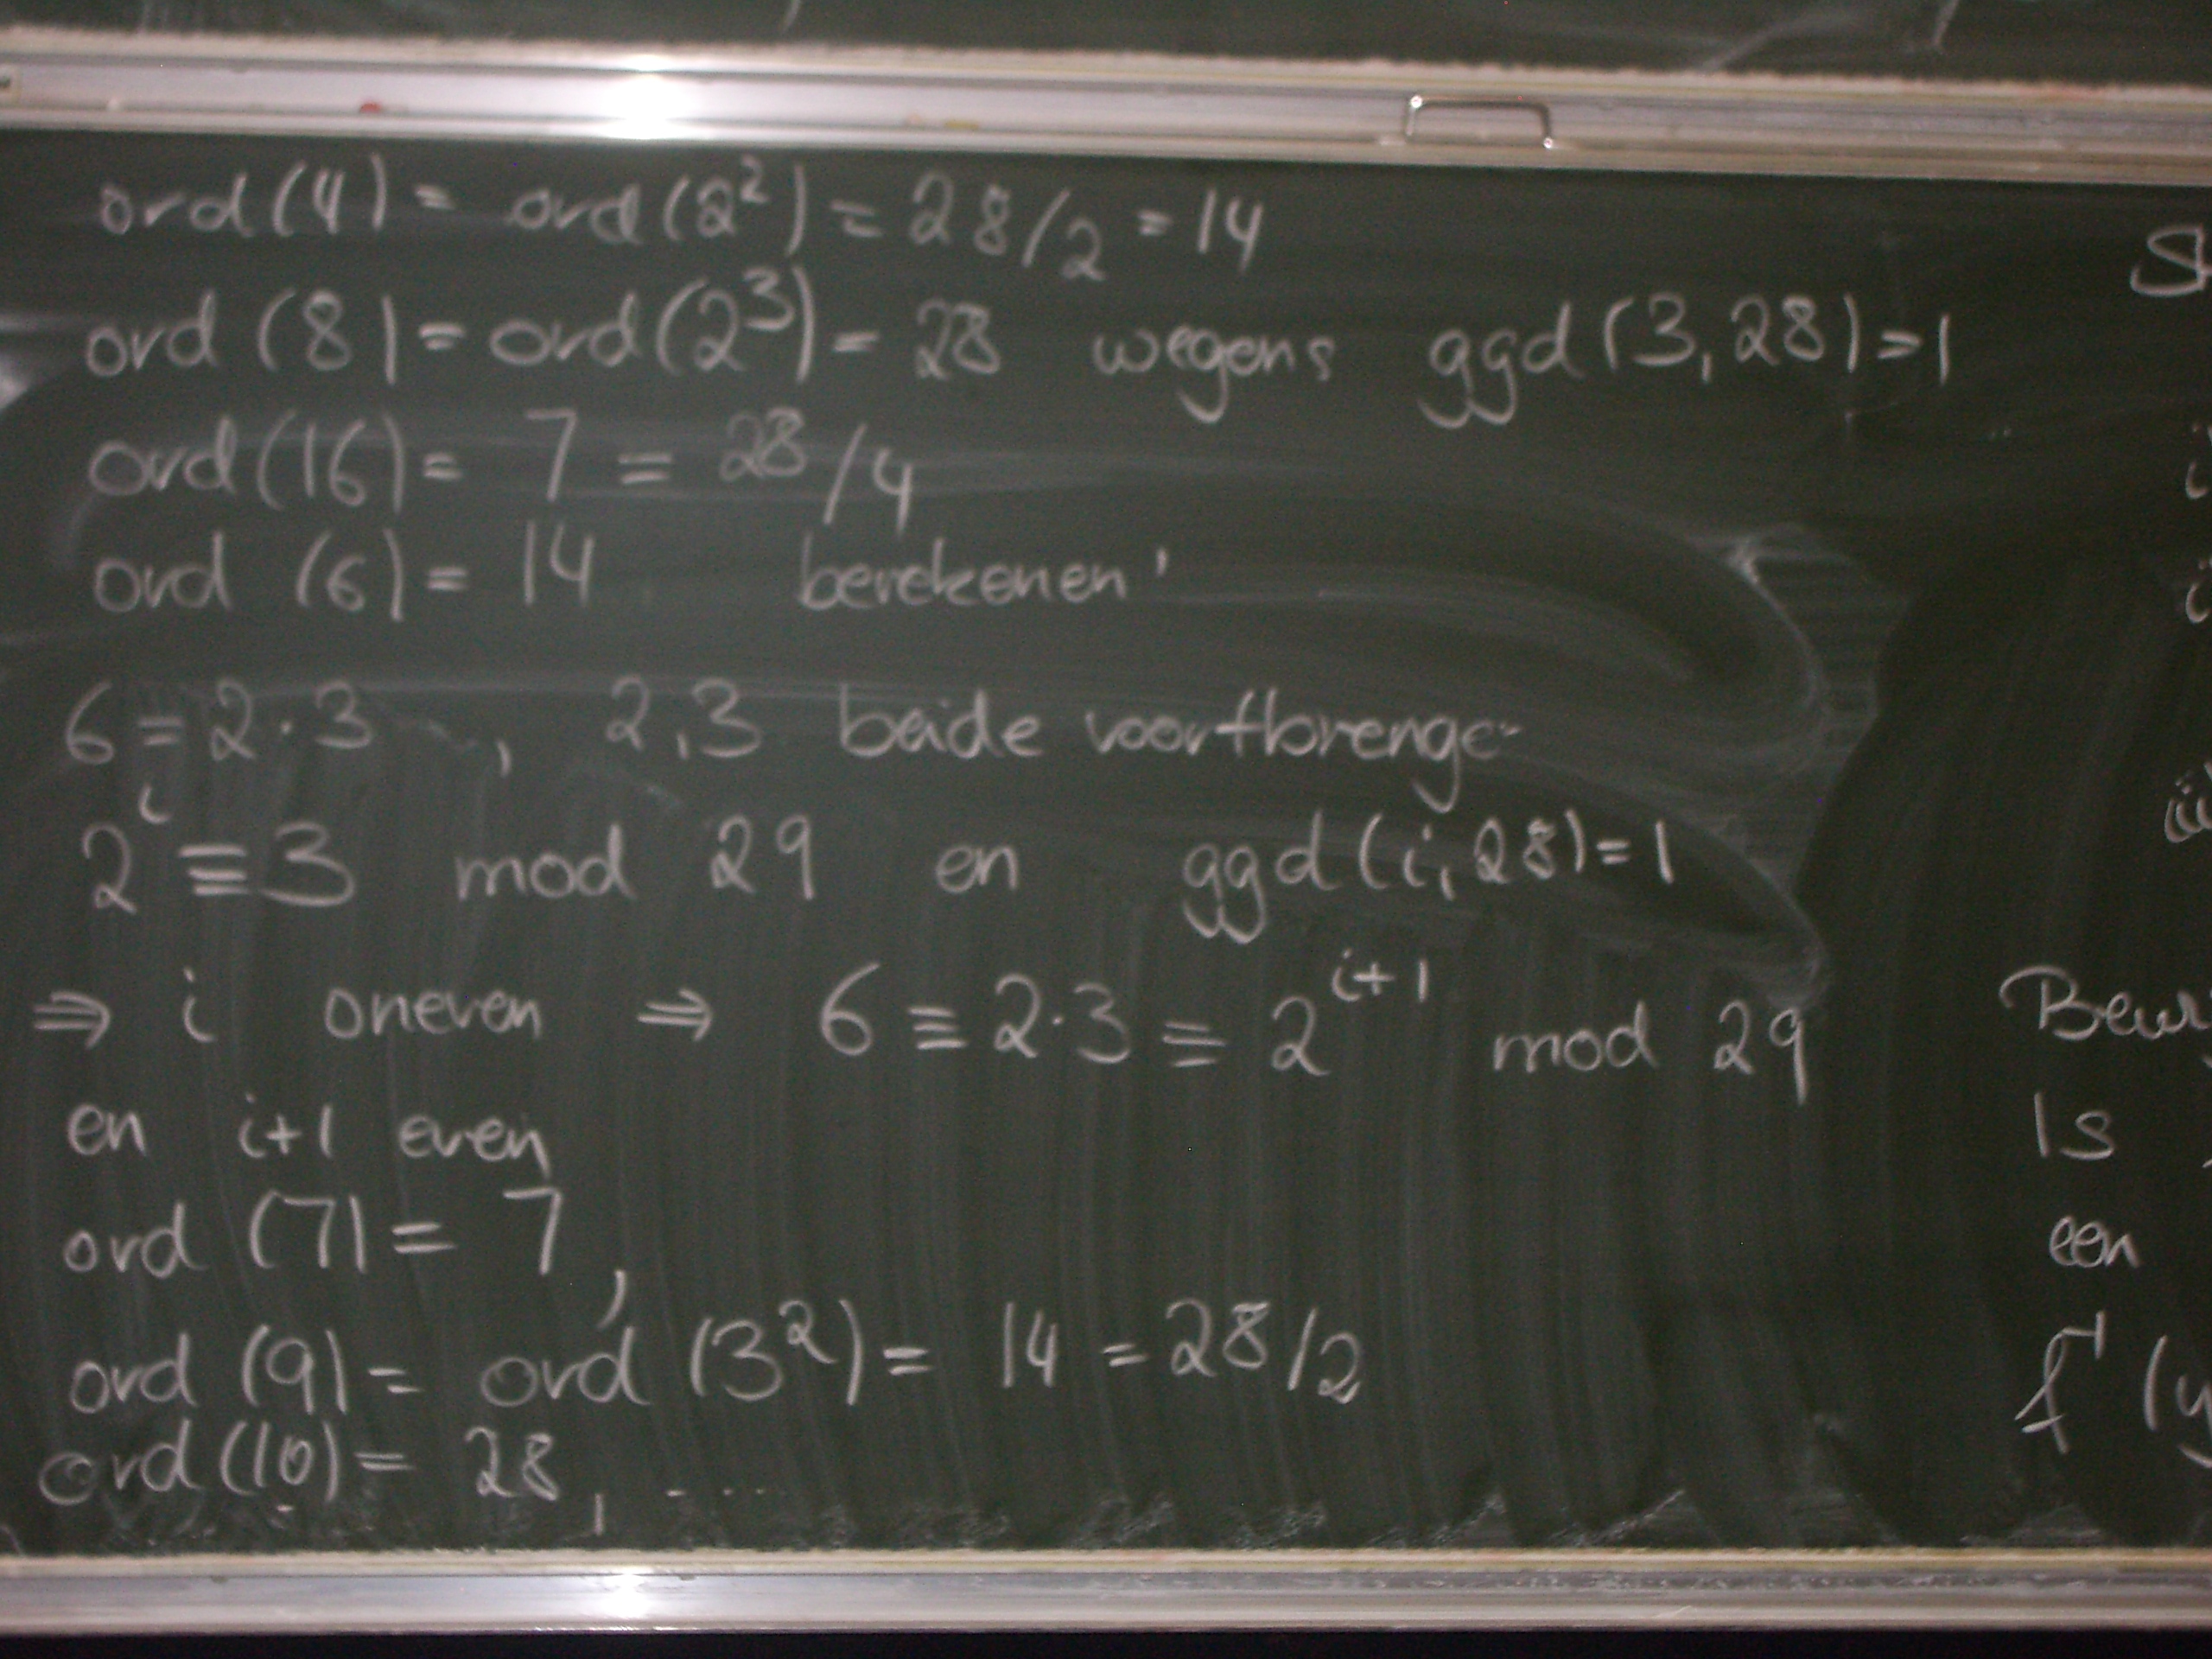 ord(4) = ord(2²) = 28/2 = 14
ord (8) = ord(2³) = 28 wegens ggd(3,28)=1
ord(16) = 7 = 28/4
ord (6) = 14 berekenen'
6 = 2·3 , 2,3 beide voortbrenger
2ⁱ ≡ 3 mod 29 en ggd(i,28)=1
⇒ i oneven ⇒ 6 ≡ 2·3 ≡ 2ⁱ⁺¹ mod 29
en i+1 even
ord (7) = 7,
ord (9) = ord (3²) = 14 = 28/2
ord(10) = 28, ....
i
i
Is
een
f⁻¹(y